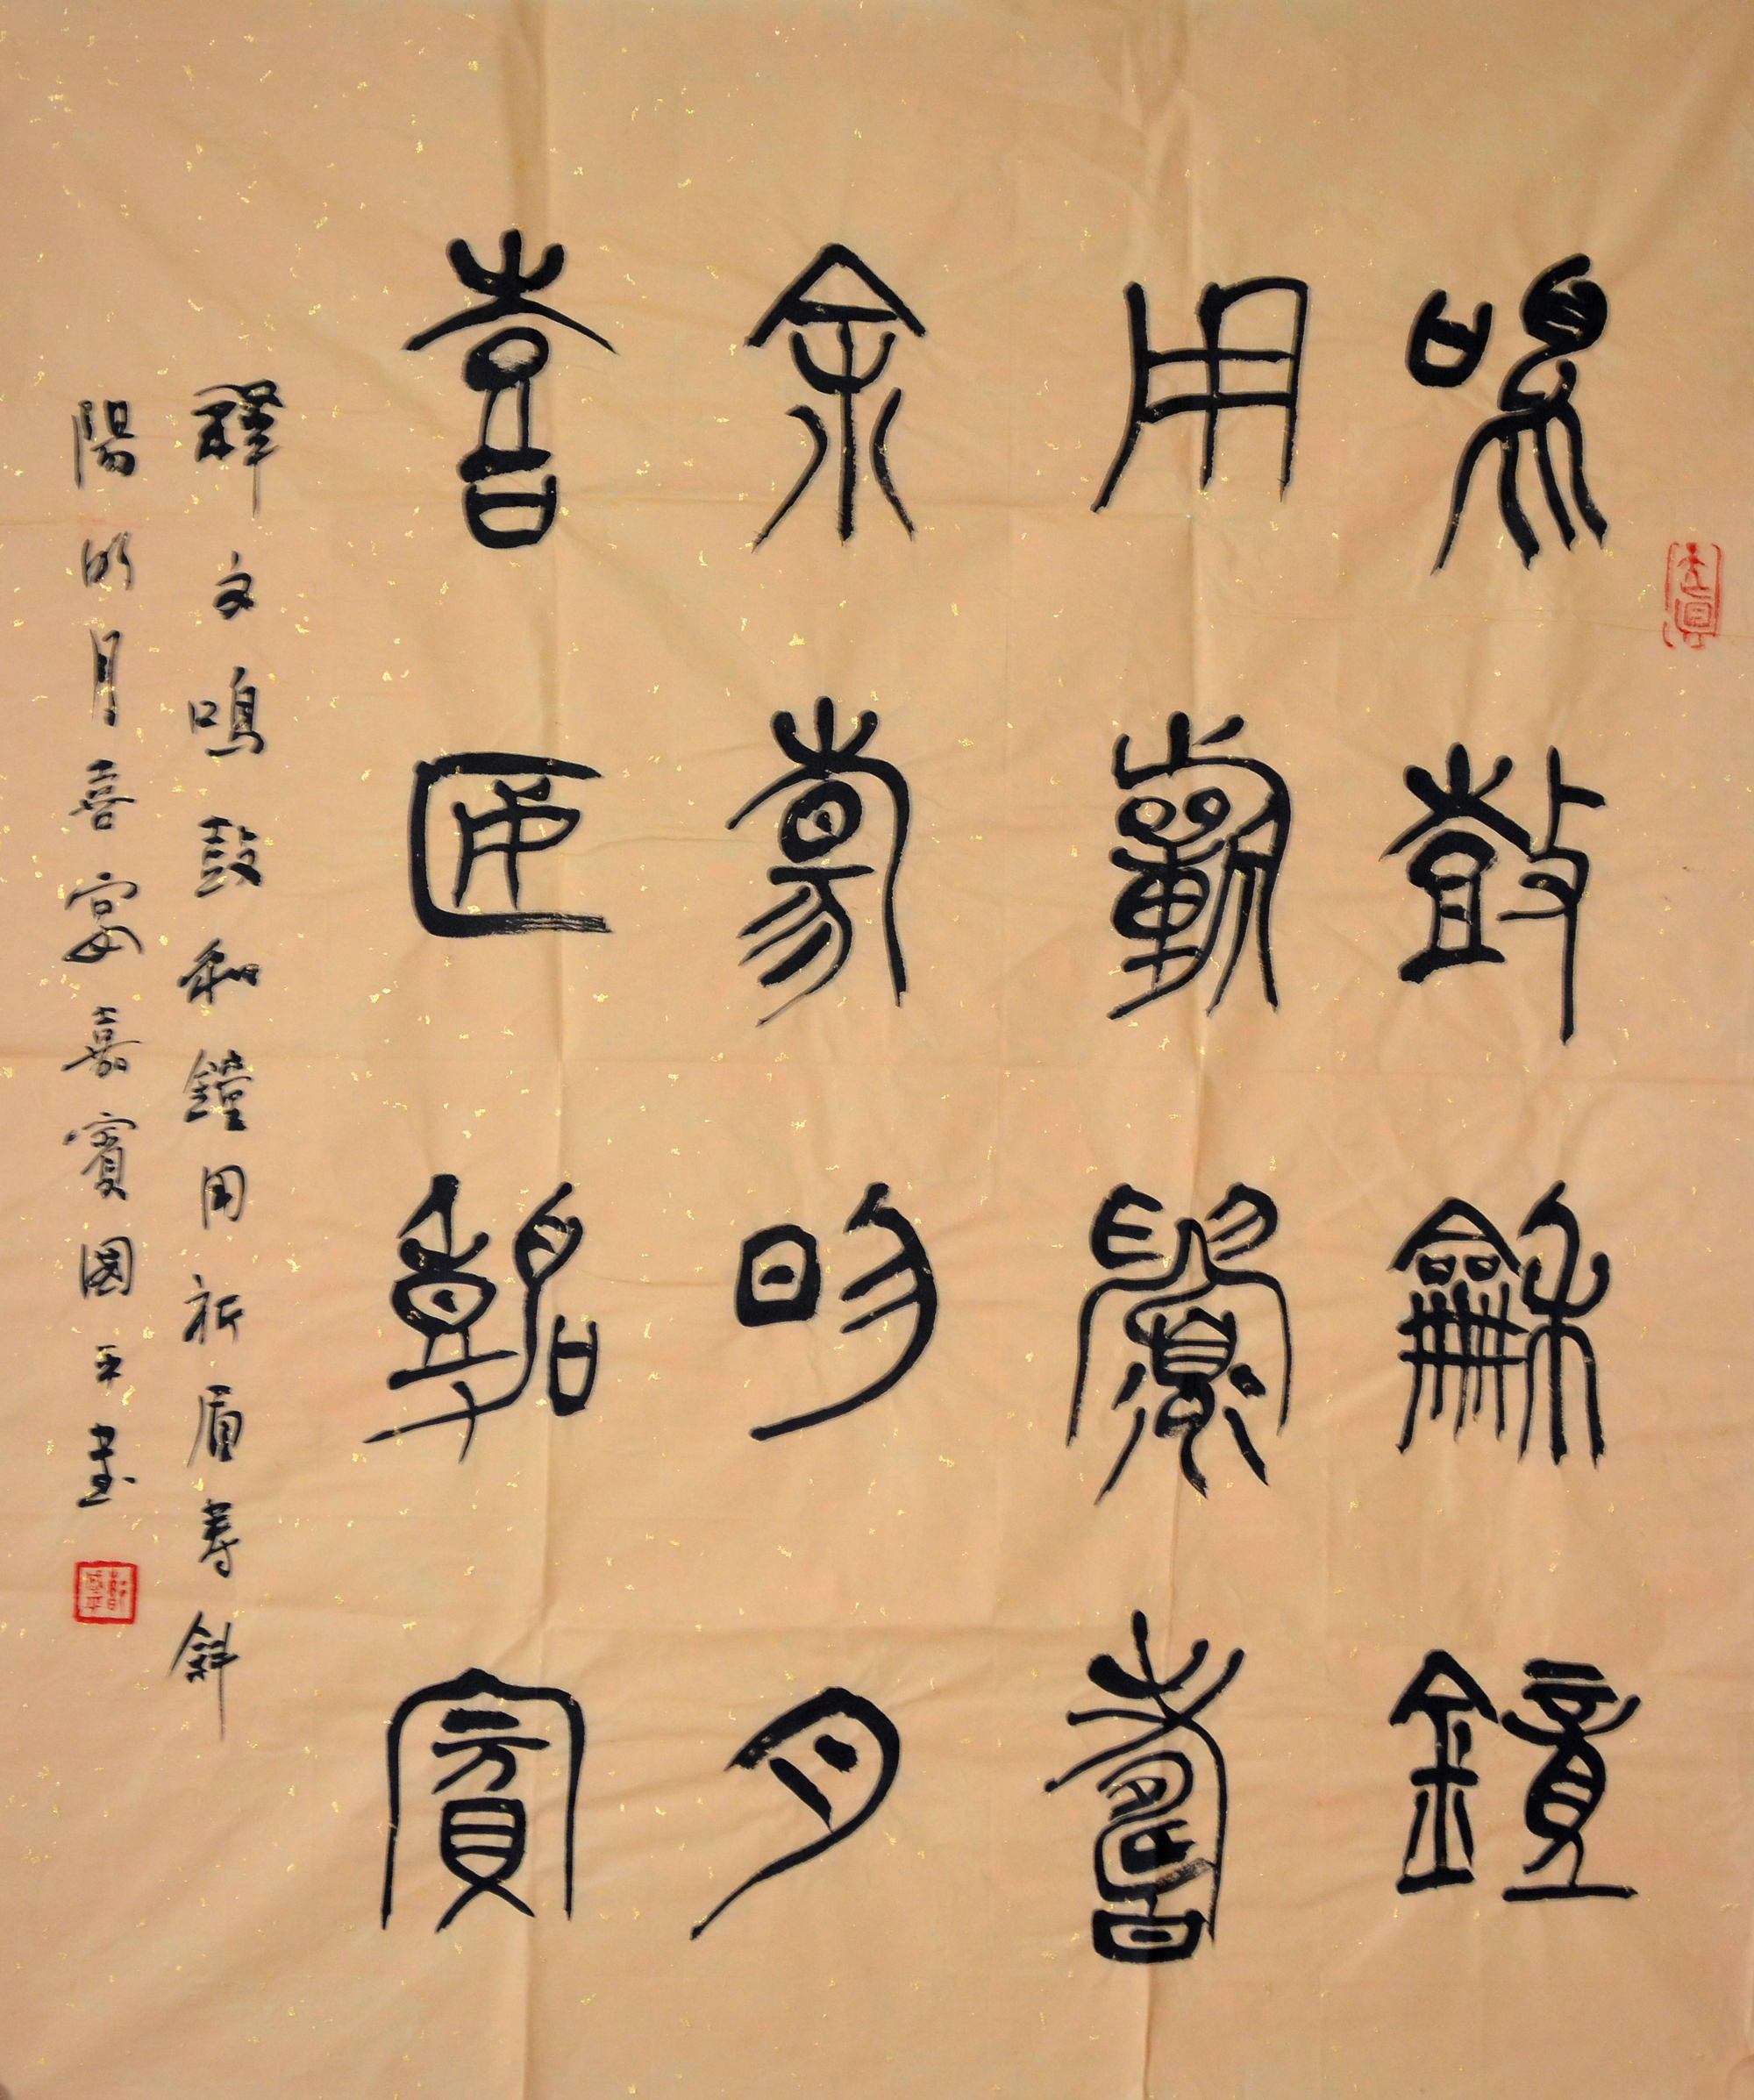 鳴鼓龢鐘
用蘄眉壽
余𠭯明月
喜匽嘉賓
釋文鳴鼓和鐘用祈眉壽斜
陽明月喜宴嘉賓國平書